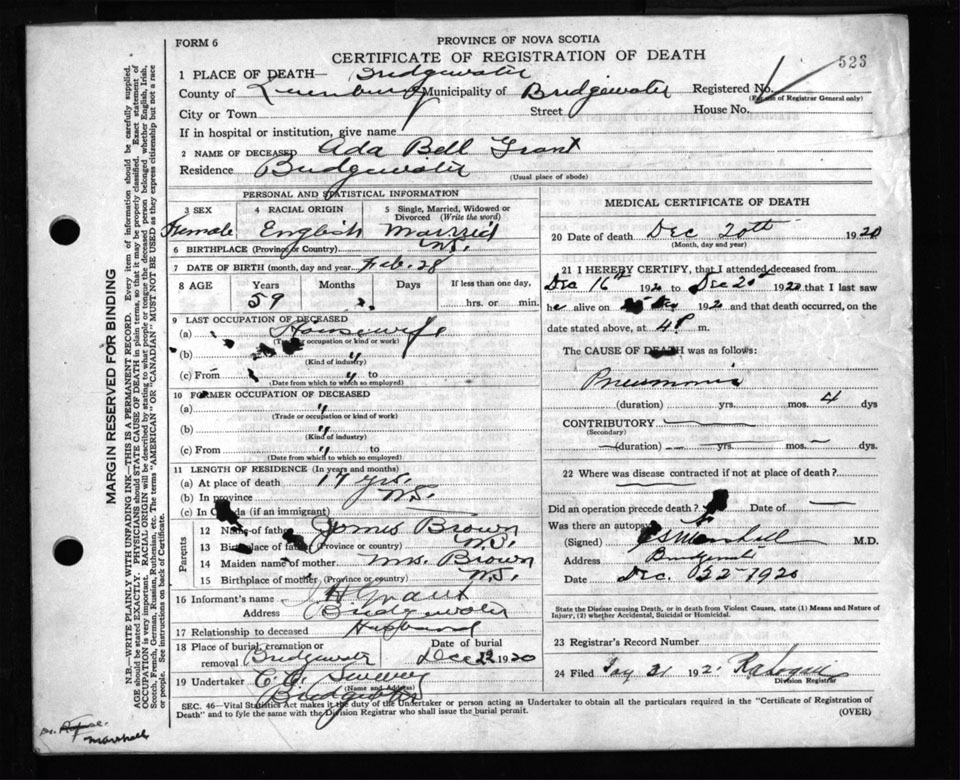 FORM 6
PROVINCE OF NOVA SCOTIA
CERTIFICATE OF REGISTRATION OF DEATH
523
1 PLACE OF DEATH— Bridgewater
County of Lunenburg Municipality of Bridgewater Registered No.
(For use of Registrar General only)
City or Town Street House No.
If in hospital or institution, give name
2 NAME OF DECEASED Ada Bell Grant
Residence Bridgewater
(Usual place of abode)
PERSONAL AND STATISTICAL INFORMATION
3 SEX 4 RACIAL ORIGIN 5 Single, Married, Widowed or Divorced (Write the word)
Female English Married
6 BIRTHPLACE (Province or Country) N.S.
7 DATE OF BIRTH (month, day and year) Feb. 28
8 AGE Years Months Days If less than one day,
59 hrs. or min.
9 LAST OCCUPATION OF DECEASED
(a) Housewife
(Trade or occupation or kind or work)
(b) "
(Kind of industry)
(c) From " to
(Date from which to which so employed)
10 FORMER OCCUPATION OF DECEASED
(a) "
(Trade or occupation or kind of work)
(b) "
(Kind of industry)
(c) From " to
(Date from which to which so employed)
11 LENGTH OF RESIDENCE (In years and months)
(a) At place of death 17 yrs.
(b) In province N.S.
(c) In Canada (if an immigrant)
Parents
12 Name of father James Brown
13 Birthplace of father (Province or country) N.S.
14 Maiden name of mother Mrs. Brown
15 Birthplace of mother (Province or country) N.S.
16 Informant's name J H Grant
Address Bridgewater
17 Relationship to deceased Husband
18 Place of burial, cremation or removal Bridgewater Date of burial Dec 22 1920
19 Undertaker C. C.
(Name and Address)
Bridgewater
MEDICAL CERTIFICATE OF DEATH
20 Date of death Dec 20th 1920
(Month, day and year)
21 I HEREBY CERTIFY, that I attended deceased from
Dec 16th 1920 to Dec 20th 1920 that I last saw
her alive on Dec 192 and that death occurred, on
date stated above, at 4 P m.
The CAUSE OF DEATH was as follows:
Pneumonia
(duration) yrs. mos. 4 dys
CONTRIBUTORY
(Secondary)
(duration) yrs. mos. dys.
22 Where was disease contracted if not at place of death?
Did an operation precede death? Date of
Was there an autopsy
(Signed) Marshall M.D.
Address Bridgewater
Date Dec. 22 1920
State the Disease causing Death, or in death from Violent Causes, state (1) Means and Nature of Injury, (2) whether Accidental, Suicidal or Homicidal.
23 Registrar's Record Number
24 Filed 21 192
Division Registrar
SEC. 46—Vital Statistics Act makes it the duty of the Undertaker or person acting as Undertaker to obtain all the particulars required in the "Certificate of Registration of
Death" and to fyle the same with the Division Registrar who shall issue the burial permit.
(OVER)
MARGIN RESERVED FOR BINDING
N.B.—WRITE PLAINLY WITH UNFADING INK—THIS IS A PERMANENT RECORD. Every item of information should be carefully supplied.
AGE should be stated EXACTLY. PHYSICIANS should STATE CAUSE OF DEATH in plain terms, so that it may be properly classified. Exact statement of
OCCUPATION is very important. RACIAL ORIGIN will be described by stating to what people or tongue the deceased person belonged whether English, Irish,
Scotch, French, German, Russian, Ruthenian, etc. The terms "AMERICAN" or "CANADIAN" MUST NOT BE USED as they express citizenship but not a race
or people. See instructions on back of Certificate.
Dr.
Marshall